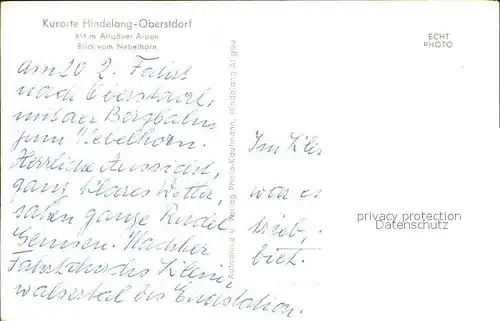 Kurorte Hindelang-Oberstdorf
851 m Allgäuer Alpen
Blick vom Nebelhorn
ECHT
PHOTO
Aufnahme u. Verlag Photo-Kaufmann, Hindelang Allgäu
am 20 2. Fahrt
nach Oberstdorf,
mit der Bergbahn
zum Nebelhorn.
Herrliche Aussicht,
ganz klares Wetter,
sahen ganze Rudel
Gemsen. Nachher
Fahrt durchs Klein,
walsertal bis Endstation.
Im
war es
trieb,
biet.
privacy protection
Datenschutz